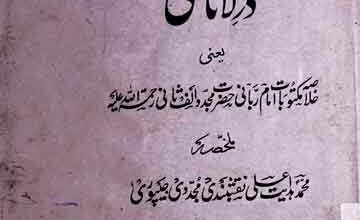 در لاثانی
یعنی
خلاصہ مکتوبات امام ربانی حضرت مجدد الف ثانی رحمۃ اللہ علیہ
محمد ہدایت علی نقشبندی مجددی جیپوری